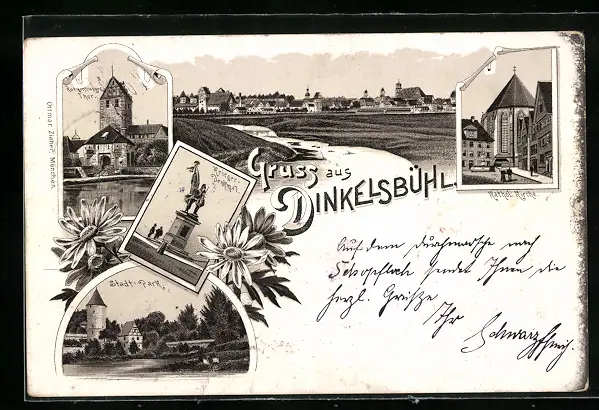 Rothenburger
Thor.
Ottmar Zieher, München.
Krieger-
Denkmal.
Gruss aus
DINKELSBÜHL.
Kathol. Kirche
Stadt-Park.
Auf dem Durchmarsche nach
sendet Ihnen die
herzl. Grüße
Ihr